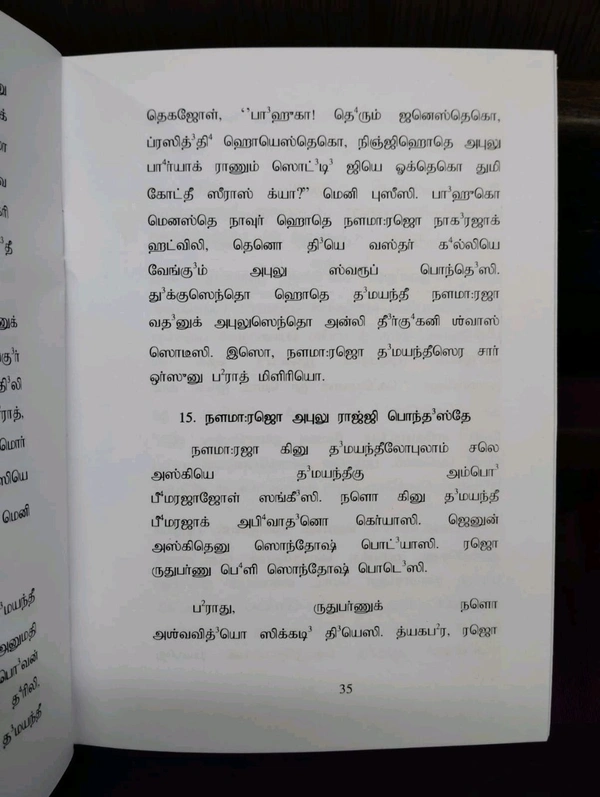 தெகஜோள், ‘’பா³ஹுகா! தெ⁴ரும் ஜனெஸ்தெகொ,
ப்ரஸித்³தி⁴ ஹொயெஸ்தெகொ, நிஞ்ஜிஹொதெ அபுலு
பா⁴ர்யாக் ராணும் ஸொட்³டி³ ஜியெ ஒக்தெகொ துமி
கோட்தீ ஸீராஸ் க்யா?” மெனி புஸீஸி. பா³ஹுகொ
மெனஸ்தெ நாவுர் ஹொதெ நளமா:ரஜொ நாக³ரஜாக்
ஹட்விலி, தெனொ தி³யெ வஸ்தர் க⁴ல்லியெ
வேங்கு³ம் அபுலு ஸ்வரூப் பொந்தெ³ஸி.
து³க்குஸெந்தொ ஹொதெ த³மயந்தீ நளமா:ரஜா
வத³னுக் அபுலுஸெந்தொ அன்லி தீ³ர்கு⁴கனி ஶ்வாஸ்
ஸொடீஸி. இஸொ, நளமா:ரஜொ த³மயந்தீஸெர சார்
ஒர்ஸுனு ப²ராத் மிளிரியொ.
15. நளமா:ரஜொ அபுலு ராஜ்ஜி பொந்த³ஸ்தே
நளமா:ரஜா கினு த³மயந்தீலோபுலாம் சலெ
அஸ்கியெ த³மயந்தீகு அம்பொ³
பீ⁴மரஜாஜோள் ஸங்கீ³ஸி. நளொ கினு த³மயந்தீ
பீ⁴மரஜாக் அபி⁴வாத³னொ கெர்யாஸி. ஜெனுன்
அஸ்கிதெனு ஸொந்தோஷ் பொட்³யாஸி. ரஜொ
ருதுபர்ணு பெ⁴ளி ஸொந்தோஷ் பொடெ³ஸி.
ப²ராது, ருதுபர்ணுக் நளொ
அஶ்வவித்³யொ ஸிக்கடி³ தி³யெஸி. த்யகப²ர, ரஜொ
35
அனுமதி
பொ³வன்
த⁴ரிலி.
த³மயந்தீ